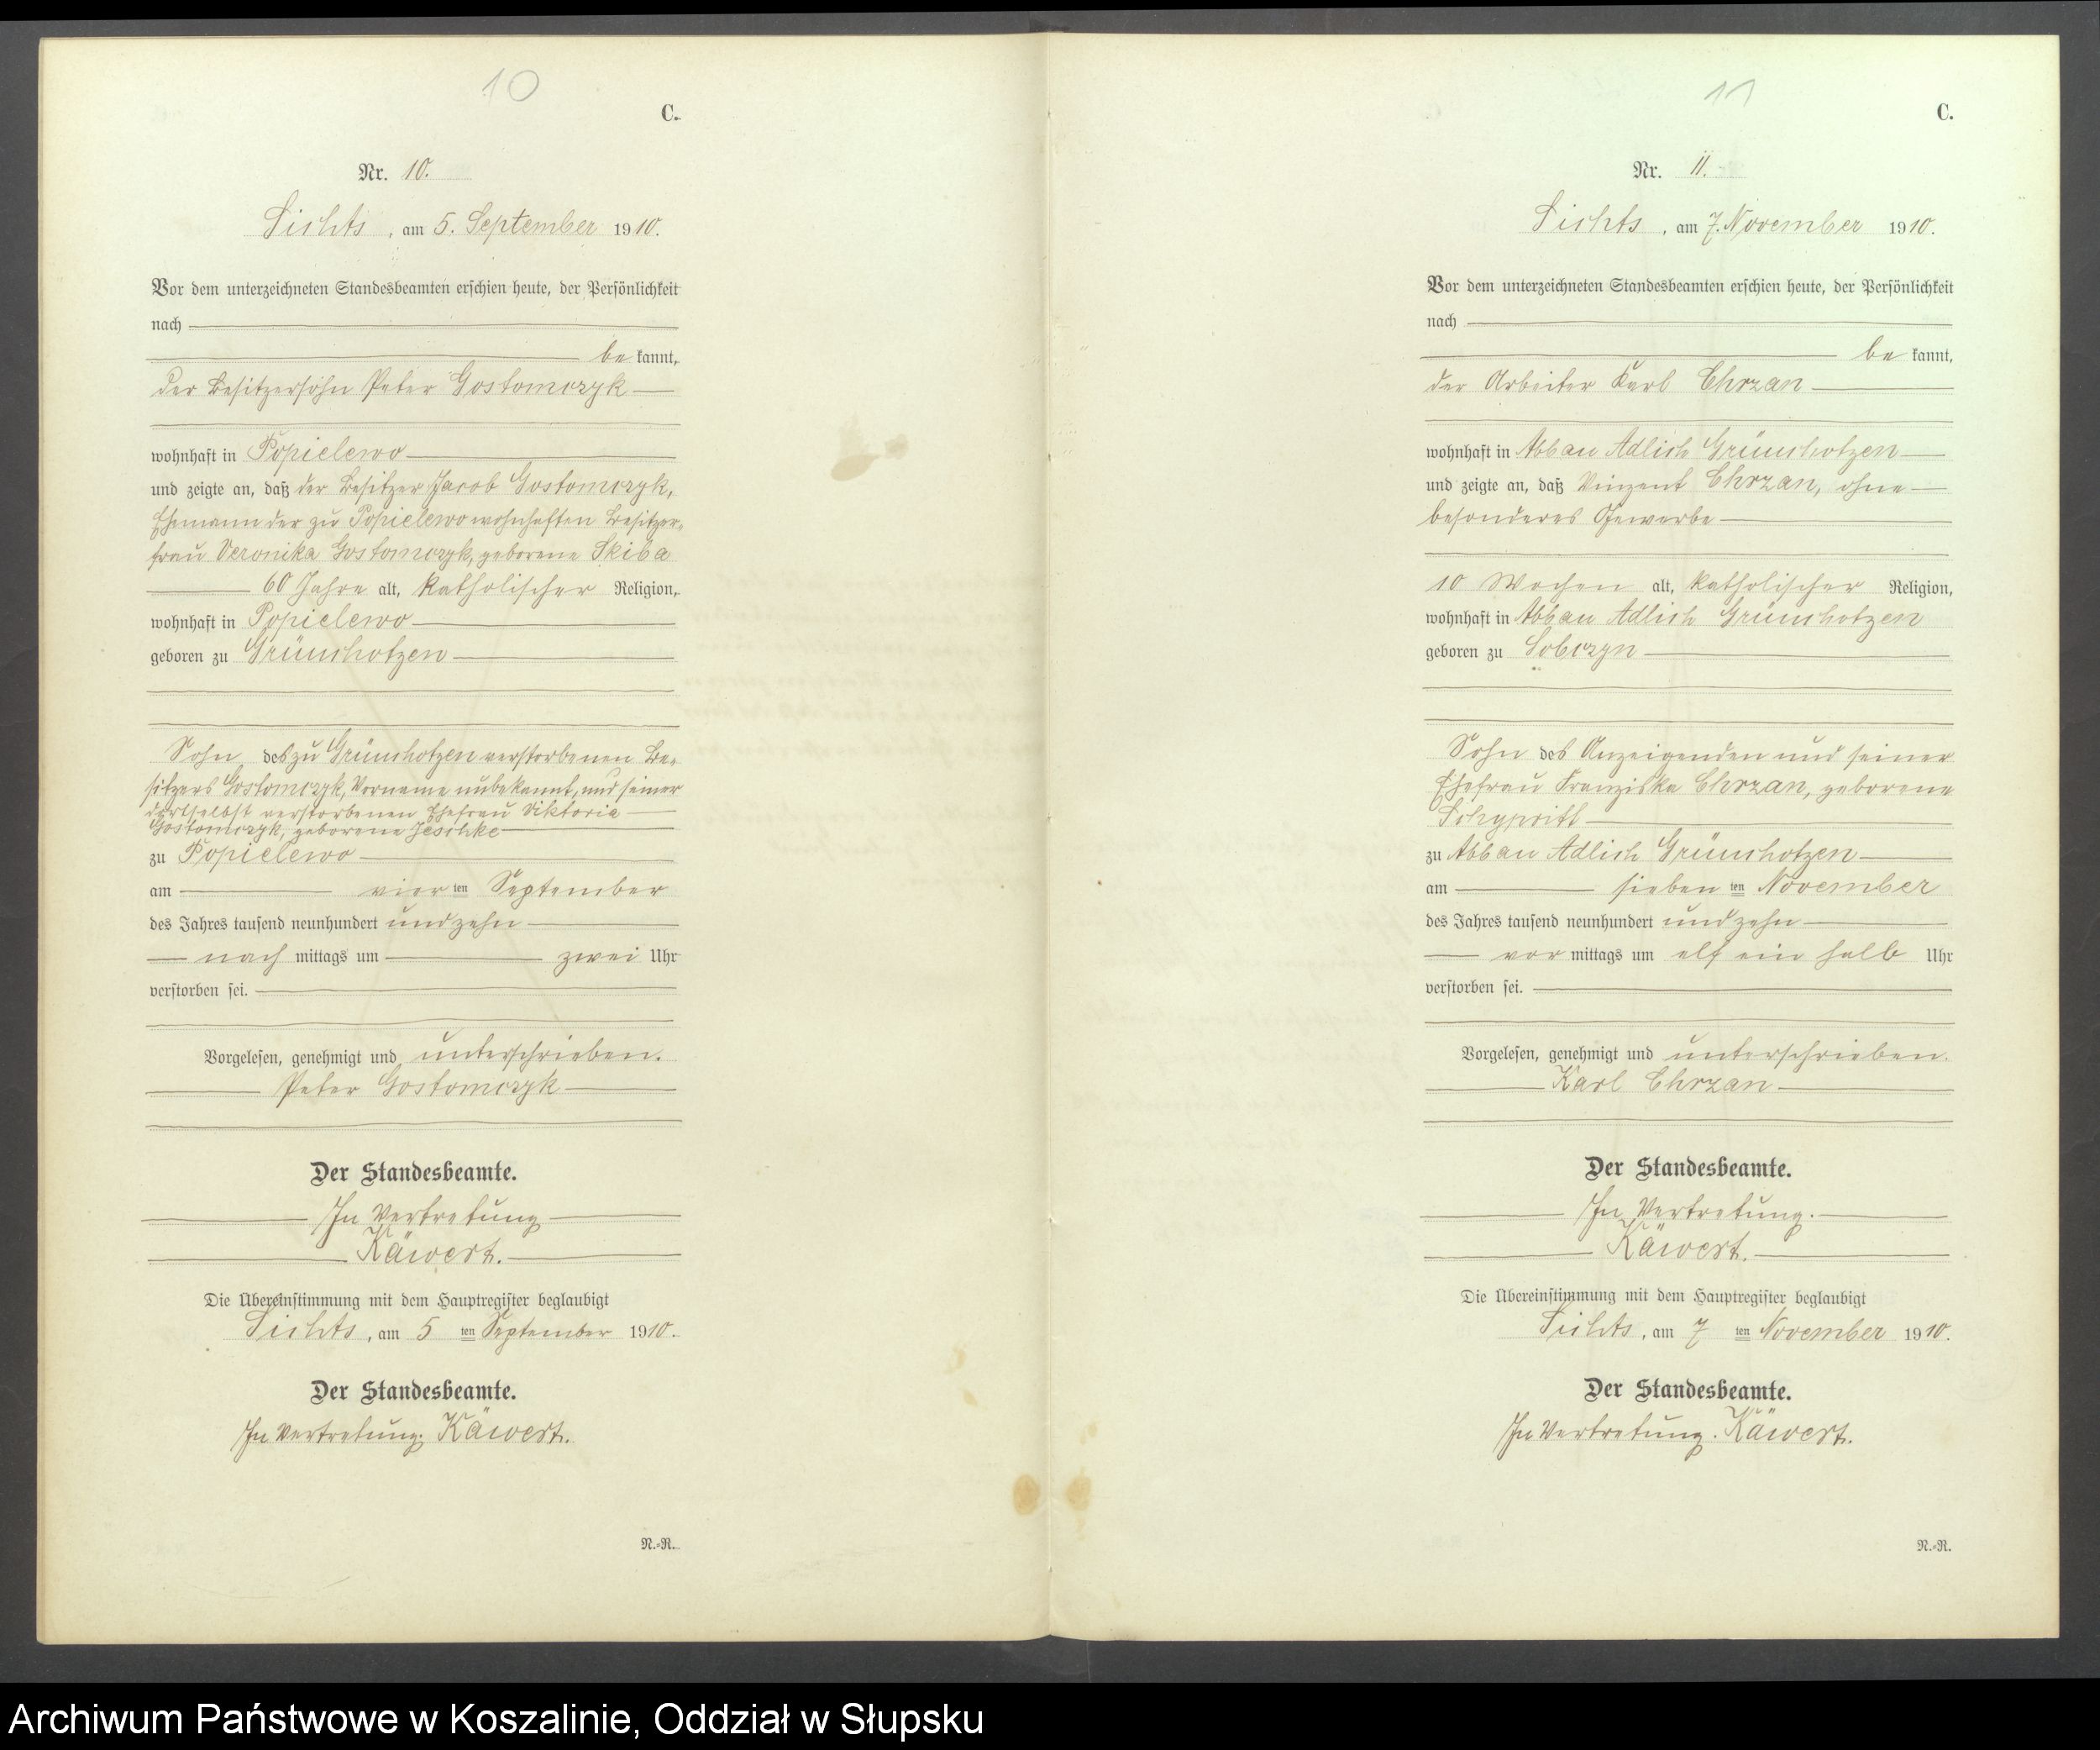 10
C.
Nr. 10.
Lichts, am 5. September 1910.
Vor dem unterzeichneten Standesbeamten erschien heute, der Persönlichkeit
nach
be kannt,
der Besitzersohn Peter Gostomczyk
wohnhaft in Popielewo
und zeigte an, daß der Besitzer Jacob Gostomczyk,
Ehemann der zu Popielewo wohnhaften Besitzer-
frau Veronika Gostomczyk, geborene Skiba
60 Jahre alt, katholischer Religion,
wohnhaft in Popielewo
geboren zu Grünchotzen
Sohn des zu Grünchotzen verstorbenen Be-
sitzers Gostomczyk, Vorname unbekannt, und seiner
dortselbst verstorbenen Ehefrau Viktoria
Gostomczyk, geborene Jeschke
zu Popielewo
am vier ten September
des Jahres tausend neunhundert und zehn
nach mittags um zwei Uhr
verstorben sei.
Vorgelesen, genehmigt und unterschrieben.
Peter Gostomczyk
Der Standesbeamte.
In Vertretung
Käwert.
Die Übereinstimmung mit dem Hauptregister beglaubigt
Lichts, am 5 ten September 1910.
Der Standesbeamte.
In Vertretung: Käwert.
N.-R.
11
C.
Nr. 11.
Lichts, am 7. November 1910.
Vor dem unterzeichneten Standesbeamten erschien heute, der Persönlichkeit
nach
be kannt,
der Arbeiter Karl Chrzan
wohnhaft in Abbau Adlich Grünchotzen
und zeigte an, daß Vinzent Chrzan, ohne
besonderes Gewerbe
10 Wochen alt, katholischer Religion,
wohnhaft in Abbau Adlich Grünchotzen
geboren zu Sobczyn
Sohn des Anzeigenden und seiner
Ehefrau Franziska Chrzan, geborene
zu Abbau Adlich Grünchotzen
am sieben ten November
des Jahres tausend neunhundert und zehn
vor mittags um elf ein halb Uhr
verstorben sei.
Vorgelesen, genehmigt und unterschrieben.
Karl Chrzan
Der Standesbeamte.
In Vertretung.
Käwert.
Die Übereinstimmung mit dem Hauptregister beglaubigt
Lichts, am 7 ten November 1910.
Der Standesbeamte.
In Vertretung. Käwert.
N.-R.
Archiwum Państwowe w Koszalinie, Oddział w Słupsku